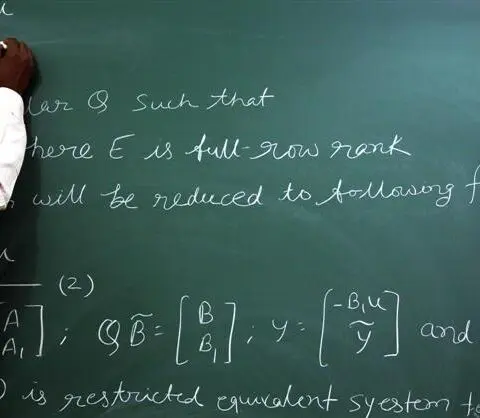 u
lar Q such that
here E is full-row rank
will be reduced to following f
u
(2)
A
A₁ ] ; Q B̃ = [ B
B₁ ] ; y = [ -B₁u
ỹ ] and
) is restricted equivalent syestem to